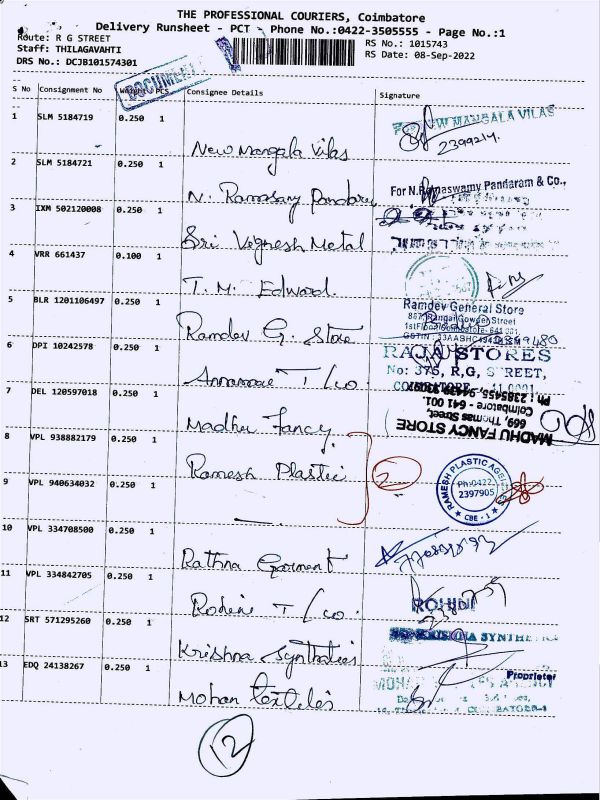 THE PROFESSIONAL COURIERS, Coimbatore
Delivery Runsheet - PCT - Phone No.:0422-3505555 - Page No.:1
Route: R G STREET
RS No.: 1015743
Staff: THILAGAVAHTI
RS Date: 08-Sep-2022
DRS No.: DCJB101574301
DOCUMENT
S No Consignment No Weight PCS Consignee Details Signature
1 SLM 5184719 0.250 1 New Mangala Vilas NEW MANGALA VILAS
2399214.
2 SLM 5184721 0.250 1 N. Ramasamy Pandaram For N.Ramaswamy Pandaram & Co.,
3 IXM 502120008 0.250 1 Sri Vegnesh Metal
4 VRR 661437 0.100 1 T. M. Edward
5 BLR 1201106497 0.250 1 Ramdev G. Store Ramdev General Store
1st Floor Coimbatore- 641 001
6 DPI 10242578 0.250 1 T / co RAJA STORES
No: 375, R,G, STREET,
7 DEL 120597018 0.250 1 Madhu Fancy MADHU FANCY STORE
669, Thomas Street,
Coimbatore - 641 001.
8 VPL 938882179 0.250 1 Ramesh Plastic 2 RAMESH PLASTIC
Ph:0422
2397905
CBE - 1
9 VPL 940634032 0.250 1
10 VPL 334708500 0.250 1 Rathna Garment
11 VPL 334842705 0.250 1 Rohini T / co. ROHINI
12 SRT 571295260 0.250 1 Krishna Synthetics KRISHNA SYNTHE
Proprietor
13 EDQ 24138267 0.250 1 Mohan Textiles
12